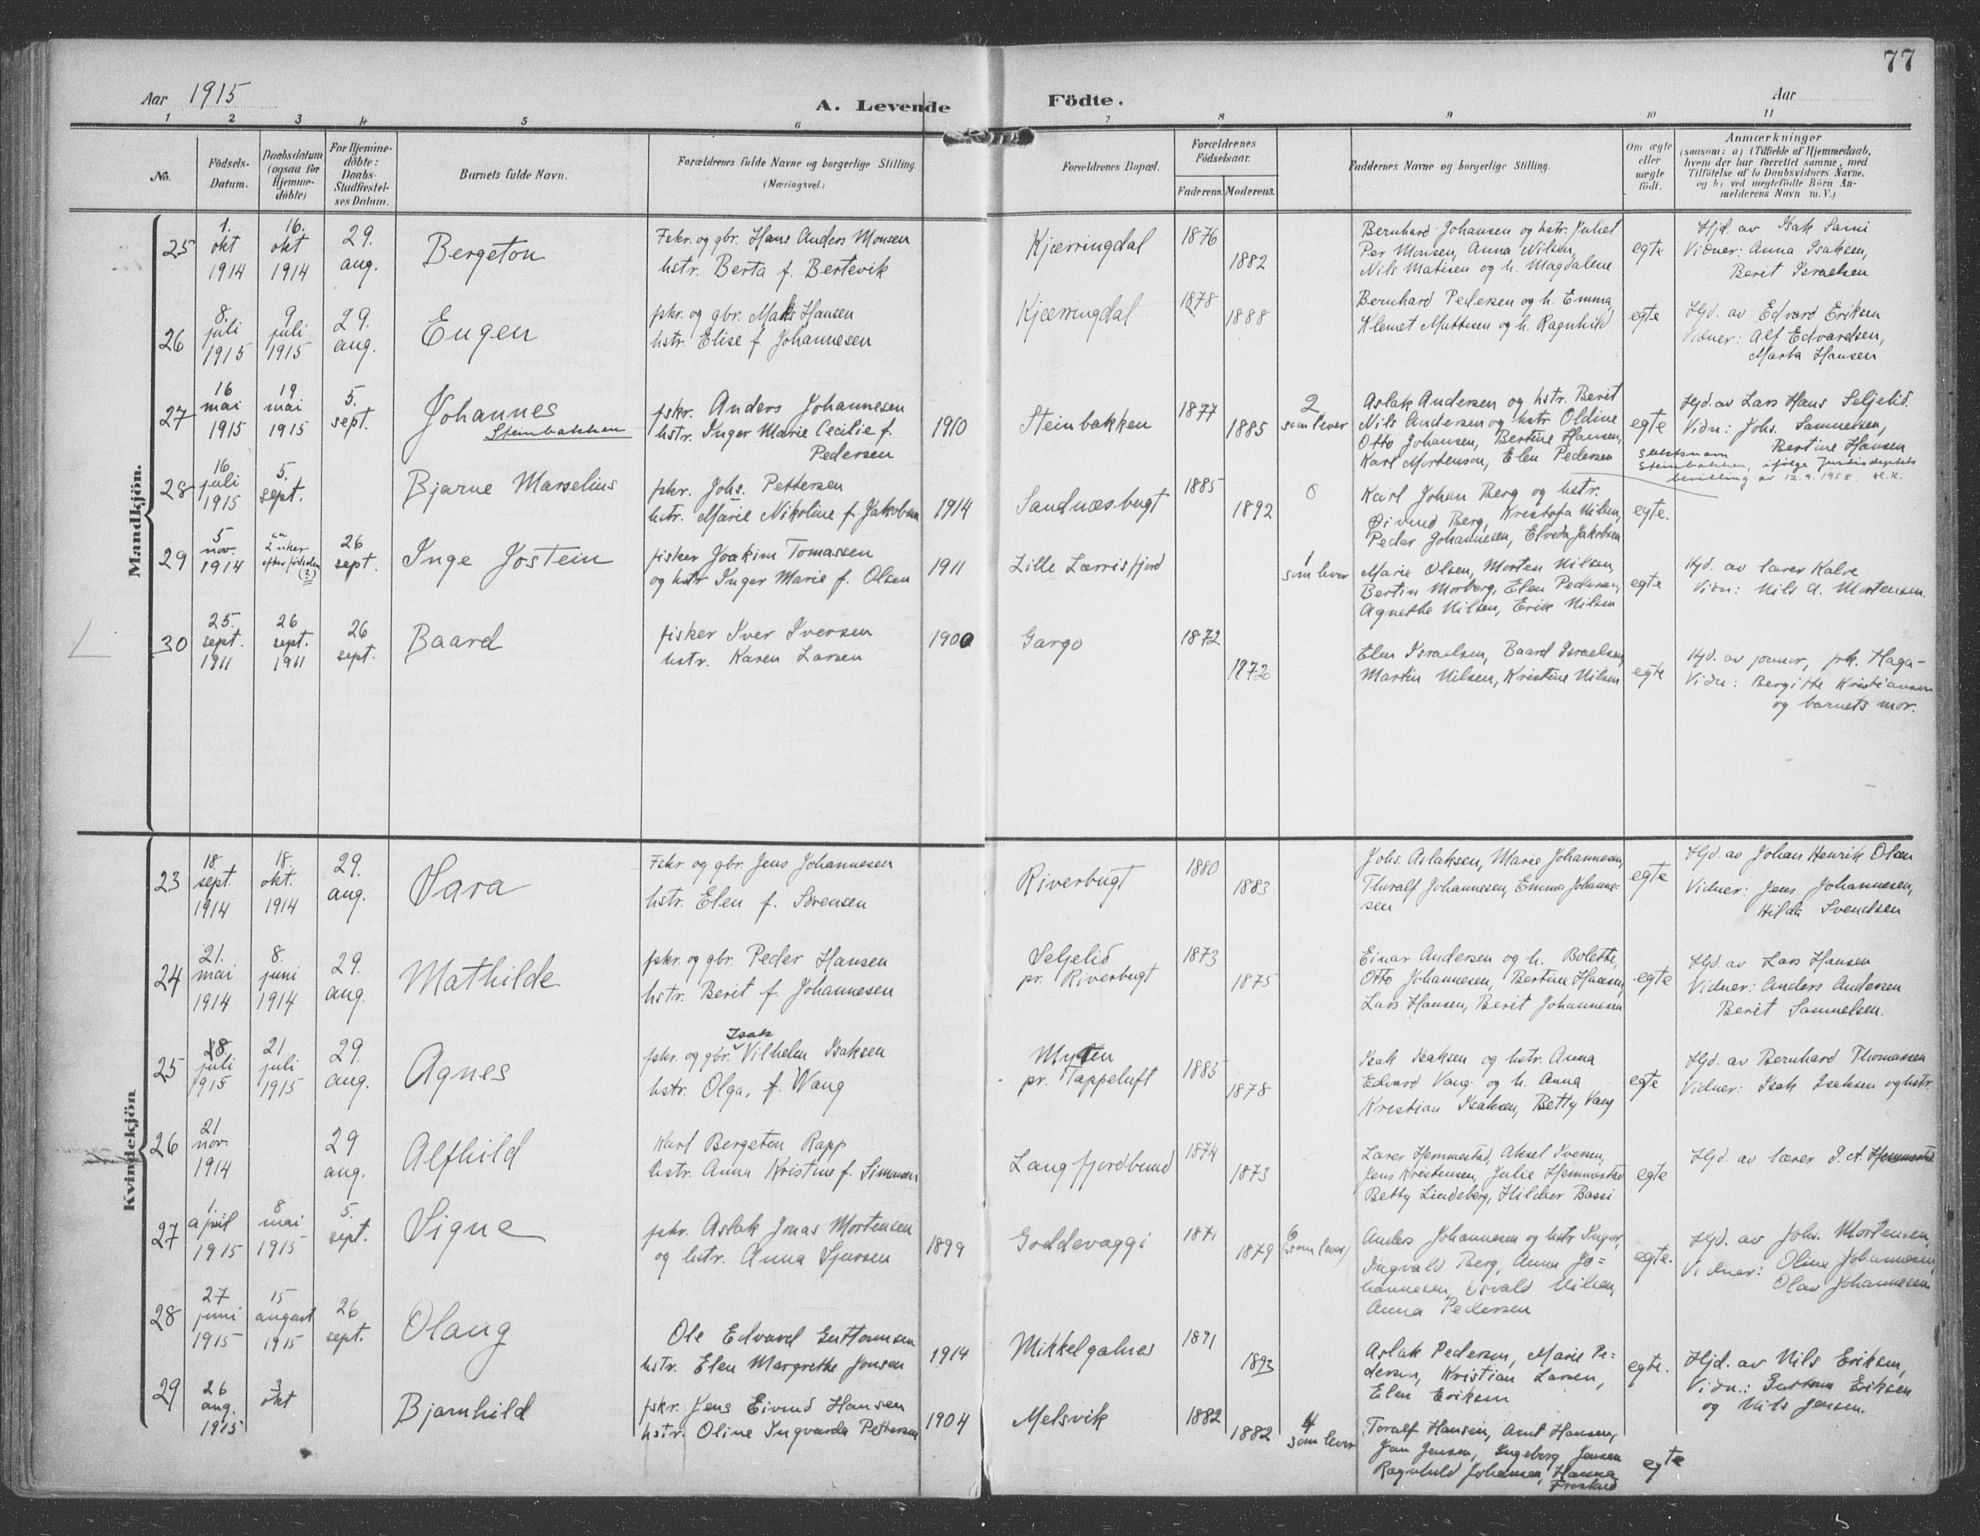 77
Aar 1915
A. Levende Födte.
Aar
1 2 3 4 5 6 7 8 9 10 11
No.
Födsels-Datum.
Daabsdatum (ogsaa for Hjemmedöbte)
For Hjemmedöbte: Daabs-Stadfæstelses Datum.
Barnets fulde Navn.
Forældrenes fulde Navne og borgerlige Stilling. (Næringsvei.)
Forældrenes Bopæl.
Forældrenes Födselsaar.
Faderens. Moderens.
Faddernes Navne og borgerlige Stilling.
Om ægte eller uægte födt.
Anmærkninger
(saasom: a) i Tilfælde af Hjemmedaab, hvem der har forrettet samme, med Tilföielse af to Daabsvidners Navne, og b) ved uægtefödte Börn Anmelderens Navn m. V.)
Mandkjön.
25 1. okt 1914 16. okt 1914 29. aug. Bergeton
Fskr. og gbr. Hans Anders Monsen
hstr. Berta f. Bertevik
Kjærringdal 1876 1882
Bernhard Johansen og hstr. Juliet
Per Monsen, Anna Nilsen,
Nils Matisen og h. Magdalene
egte
Hjd. av Isak Saini
Vidner: Anna Isaksen,
Berit Israelsen
26 8. juli 1915 9 juli 1915 29. aug. Eugen
fskr. og gbr. Maks Hansen
hstr. Elise f. Johannesen
Kjærringdal 1878 1888
Bernhard Pedersen og h. Emma
Klemet Mattisen og h. Ragnhild
egte
Hjd. av Edvard Eriksen
Vidner: Alf Edvardsen,
Marta Hansen
27 16 mai 1915 19 mai 1915 5. sept. Johannes
Steinbakken
fskr. Anders Johannesen
hstr. Inger Marie Cecilie f.
Pedersen
1910 Steinbakken 1877 1885 2 som lever
Aslak Andersen og hstr. Berit
Nils Andersen og hstr Oldine
Otto Johansen, Bertine Hansen,
Karl Mortensen, Elen Pedersen
egte
Hjd. av Lars Hans Seljelid.
Vidn: Johs. Samuelsen,
Bertine Hansen
Slektsnavn
Steinbakken, ifølge Justisdeptets
bevilling av 12.9.1958. H.K.
28 16 juli 1915 5. sept. Bjarne Marselius
fskr. Johs. Pettersen
hstr. Marie Nikoline f. Jakobsen
1914 Sandnæsbugt 1885 1892 0
Karl Johan Berg og hstr.
Øivind Berg, Kristofa Nilsen,
Peder Johannesen, Elvida Jakobsen
egte.
29 5 nov. 1914 ca 2 uker efter fødselen (?) 26 sept. Inge Jostein
fisker Joakim Tomassen
og hstr Inger Marie f. Olsen
1911 Lille Lærrisfjord 1 som lever
Marie Olsen, Morten Nilsen,
Bertin Morberg, Elen Pedersen,
Agnethe Nilsen, Erik Nilsen
egte
Hjd. av lærer Kalve
Vidn: Nils A. Mortensen.
30 25. sept. 1911 26 sept. 1911 26 sept. Baard
fisker Iver Iversen
hstr. Karen Larsen
1900 Gargo 1872 1872
Elen Israelsen, Baard Israelsen,
Martin Nilsen, Kristine Nilsen
egte
Hjd. av jomor, frk. Haga-
Vidn: Bergitte Kristiansen
og barnets mor.
Kvindekjön
23 18 sept. 1914 18. okt. 1914 29. aug. Sara
Fskr. og gbr. Jens Johannesen
hstr. Elen f. Sørensen
Riverbugt 1880 1883
Johs. Aslaksen, Marie Johannesen,
Thoralf Johannesen, Emma Johanne-
sen
egte
Hjd. av Johan Henrik Olsen
Vidner: Jens Johannesen,
Hilda Svendsen
24 21. mai 1914 8. juni 1914 29. aug. Mathilde
fskr. og gbr. Peder Hansen
hstr. Berit f. Johannesen
Seljelid
pr. Riverbugt 1873 1875
Einar Andersen og h. Bolette,
Otto Johannesen, Bertine Hansen,
Lars Hansen, Berit Johannesen
egte
Hjd. av Lars Hansen
Vidner: Anders Andersen
Berit Samuelsen.
25 18 juli 1915 21 juli 1915 29. aug. Agnes
fskr. og gbr. Isak Vilhelm Isaksen
hstr. Olga, f. Wang
Myren
pr. Tappeluft 1885 1878
Isak Isaksen og hstr. Anna
Edvard Vang og h. Anna
Kristian Isaksen, Betty Vang
egte
Hjd. av Bernhard Thomassen
Vidner: Isak Isaksen og hstr.
26 21 nov. 1914 29 aug. Alfhild
Karl Bergeton Rapp
hstr. Anna Kristine f. Simonsen
Langfjordbund 1874 1873
Lærer Hemmestad, Aksel Iversen,
Jens Kristensen, Julie Hemmestad
Betty Lindeberg, Hilder Bassi
egte
Hjd. av lærer P. A. Hemmestad
27 1. april 1915 8 mai 1915 5. sept. Signe
fskr. Aslak Jonas Mortensen
og hstr. Anna Sjursen
1899 Goddevaggi 1871 1879 6 (som lever)
Anders Johannesen og hstr Inger,
Ingvald Berg, Anna Jo=
hannesen, Osvald Nilsen,
Anna Pedersen
egte.
Hjd. av Johs. Mortensen,
Vidner: Oline Johannesen,
Olav Johannesen
28 27 juni 1915 15 august 1915 26 sept. Olaug
Ole Edvard Guttormsen
hstr. Elen Margrethe Jonsen
1914 Mikkelgalnes 1891 1893
Aslak Pedersen, Marie Pe=
dersen, Kristian Larsen,
Elen Eriksen
egte.
Hjd. av Nils Eriksen,
Vidn.: Guttorm Eriksen
og Nils Jensen.
29 26 aug. 1915 3 okt Bjarnhild
fskr. Jens Eivind Hansen
hstr. Oline Ingvarda Pettersen
1904 Melsvik 1882 1882 4 som lever
Toralf Hansen, Arnt Hansen,
Jan Jensen, Ingeborg Jensen
Ragnhild Johansen, Hanna
Fristad
egte